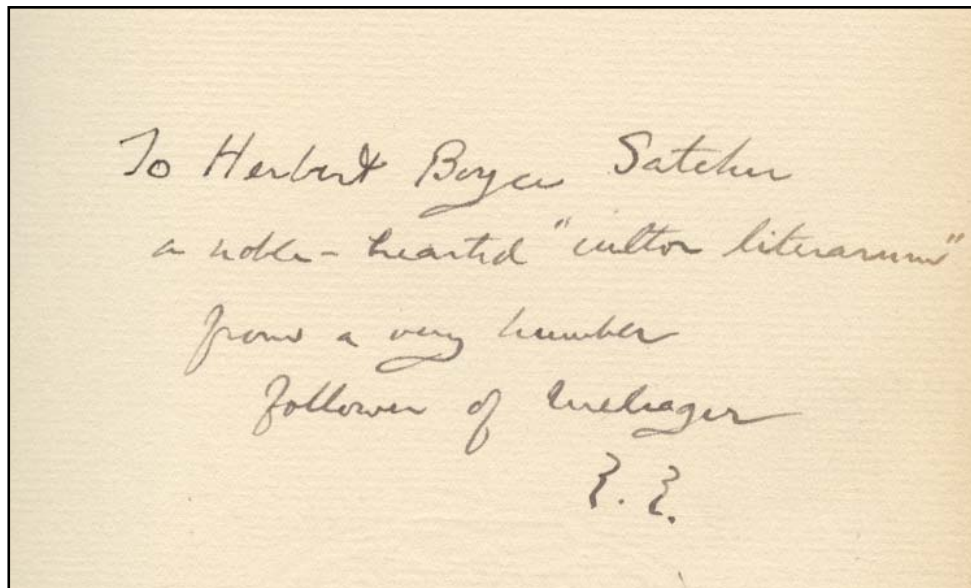 To Herbert Boyce Satcher
a noble-hearted "cultor literarum"
from a very humble
follower of Meleager
E. E.